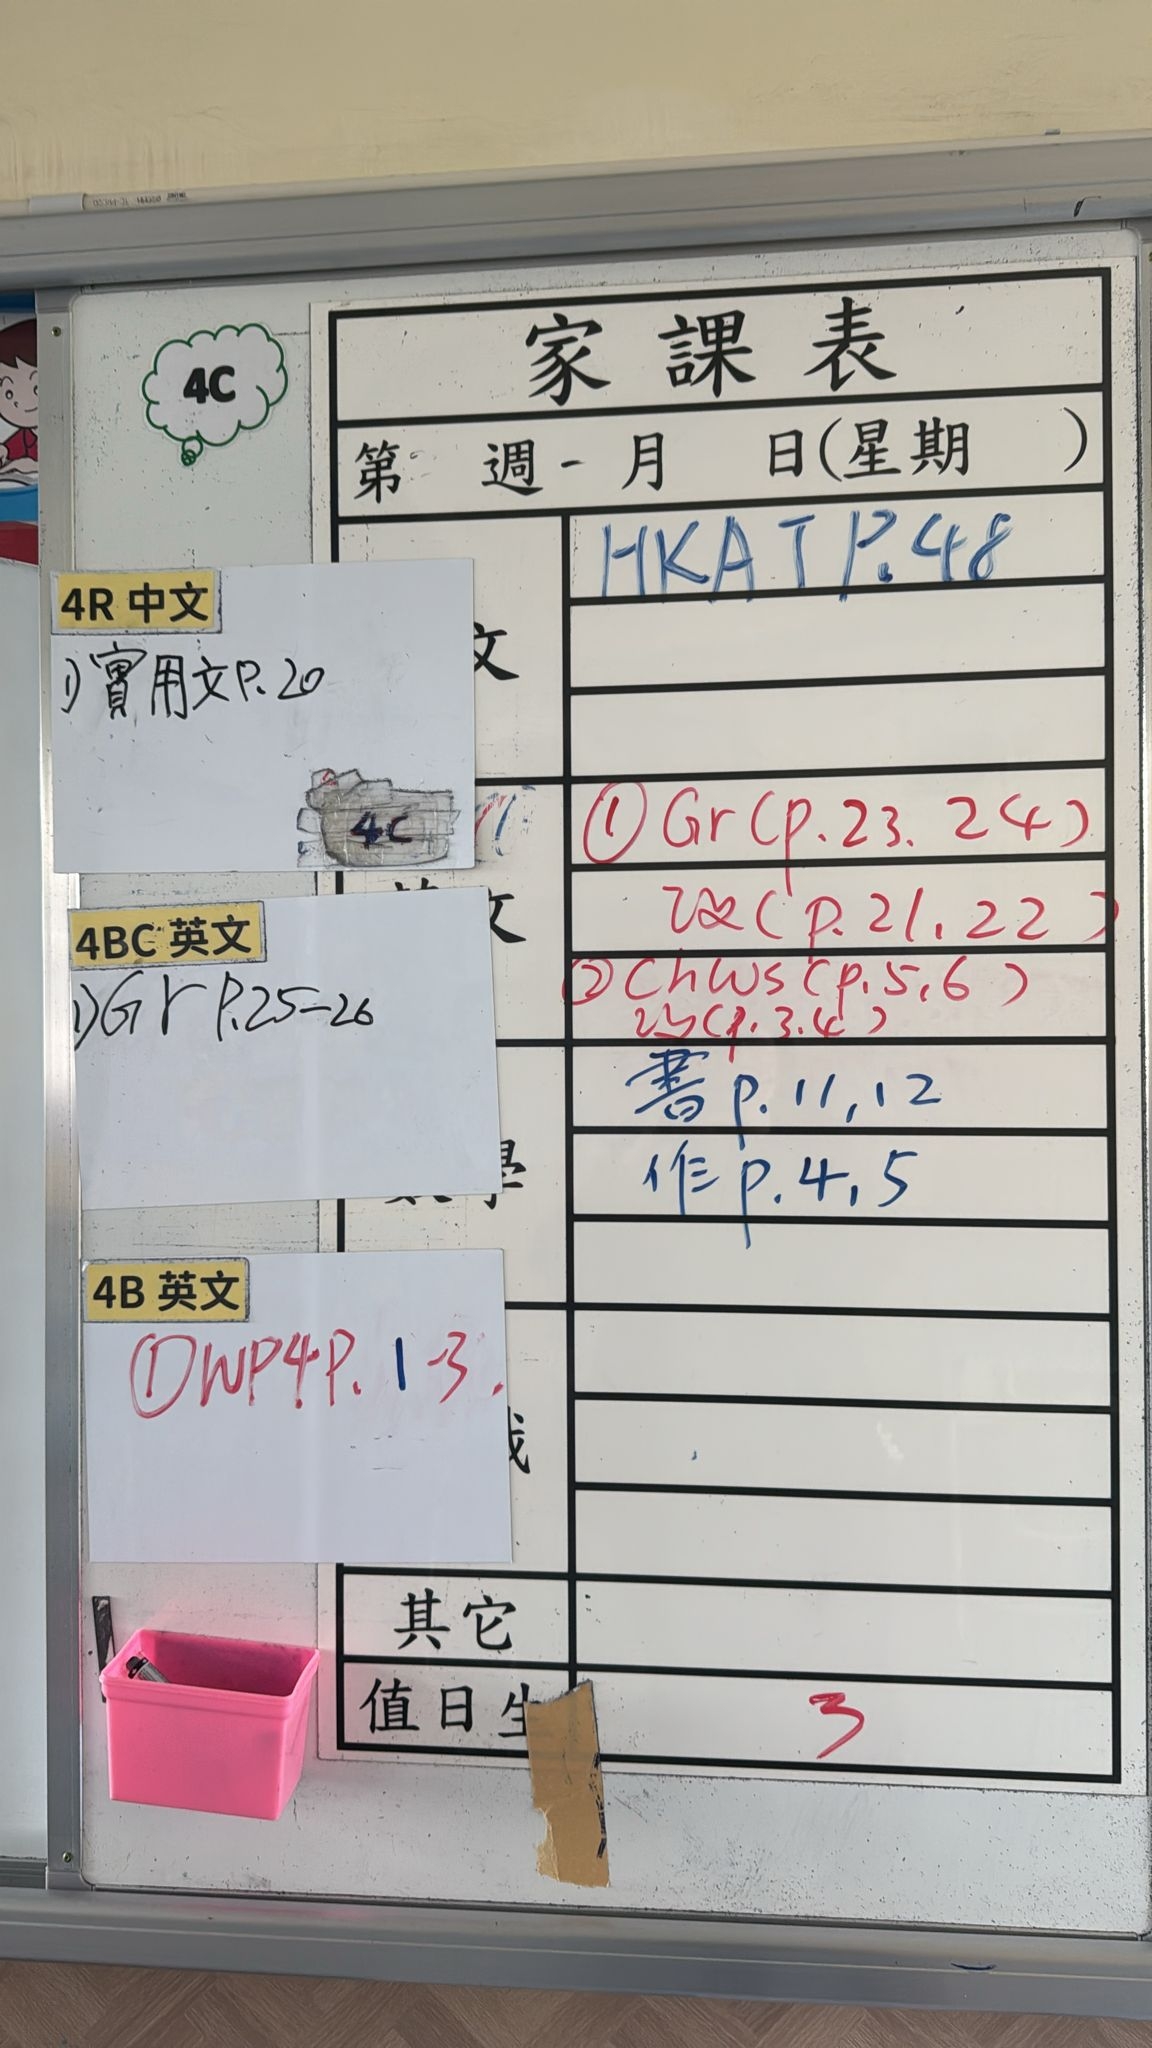 4C
家課表
第 週 - 月 日(星期 )
文
HKAT P.48
4R 中文
1)實用文P.20
4C
文
① Gr (p.23. 24)
改(p.21.22)
② ChWs (p.5,6)
改(p.3.4)
4BC 英文
1)Gr P.25-26
學
書 p.11,12
作 p.4,5
4B 英文
①WP4P.1-3.
其它
值日生
3